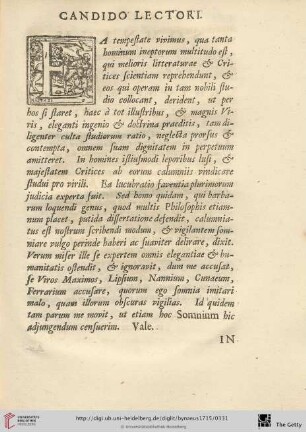 CANDIDO LECTORI.
EA tempestate vivimus, qua tanta
hominum ineptorum multitudo est,
qui melioris litteraturae & Cri-
tices scientiam reprehendunt, &
eos qui operam in tam nobili stu-
dio collocant, derident, ut per
hos si staret, haec à tot illustribus, & magnis Vi-
ris, eleganti ingenio & doctrina praeditis, tam di-
ligenter culta studiorum ratio, neglecta prorsus &
contempta, omnem suam dignitatem in perpetuum
amitteret. In homines istiusmodi leporibus lusi, &
majestatem Critices ab eorum calumniis vindicare
studui pro virili. Ea lucubratio faventia plurimorum
judicia experta fuit. Sed homo quidam, qui barba-
rum loquendi genus, quod multis Philosophis etiam-
num placet, putida dissertatione defendit, calumnia-
tus est nostrum scribendi modum, & vigilantem som-
niare vulgo perinde haberi ac suaviter delirare, dixit.
Verum miser ille se expertem omnis elegantiae & hu-
manitatis ostendit, & ignoravit, dum me accusat,
se Viros Maximos, Lipsium, Nannium, Cunaeum,
Ferrarium accusare, quorum ego somnia imitari
malo, quam illorum obscuras vigilias. Id quidem
tam parum me movit, ut etiam hoc Somnium hic
adjungendum censuerim. Vale.
IN
UNIVERSITÄTS-
BIBLIOTHEK
HEIDELBERG
http://digi.ub.uni-heidelberg.de/diglit/bynaeus1715/0131
© Universitätsbibliothek Heidelberg
The Getty